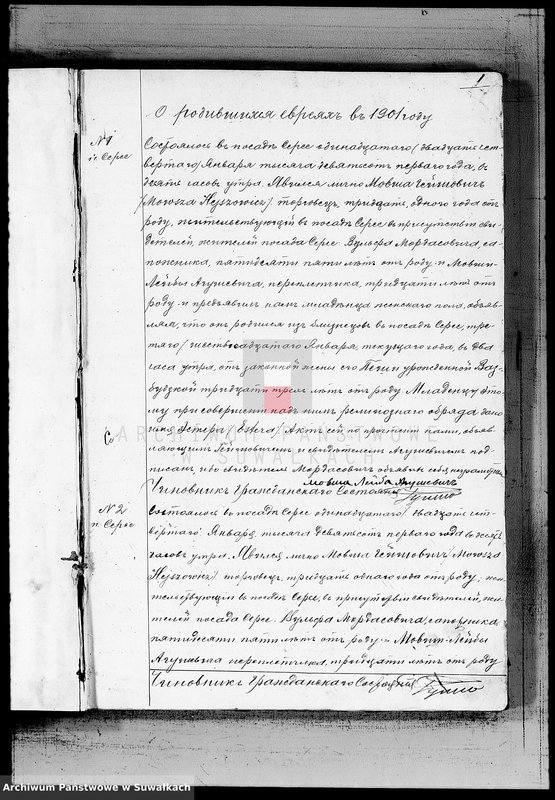 1
О родившихся евреяхъ въ 1901 году
№ 1
п. Сереє
Состоялось въ посадѣ Сереє одинадцатаго (двадцать чет-
вертаго) Января тысяча девятьсотъ перваго года, въ
десять часовъ утра. Явился лично Мовша Гейшовичъ
(Mowsza Hejszowicz) торговецъ, тридцать одного года отъ
роду, жительствующій въ посадѣ Сереє въ присутствіи сви-
дѣтелей, жителей посада Сереє Вульфа Мордасовича, са-
пожника, пятидесяти пяти лѣтъ отъ роду и Мовши-
Лейбы Агушевича, переплетчика, тридцати лѣтъ отъ
роду и предъявилъ намъ младенца женскаго пола, объяв-
ляя, что онъ родился изъ близнецовъ въ посадѣ Сереє, тре-
тяго (шестнадцатаго Января, текущаго года, въ два
часа утра, отъ законной жены его урожденной
тридцати трехъ лѣтъ отъ роду. Младенцу это-
му при совершеніи надъ нимъ религіознаго обряда дано
имя Эстера (Estera) Актъ сей по прочтеніи нами, объяв-
ляющимъ Гейшовичемъ и свидѣтелемъ Агушевичемъ под-
писанъ, ибо свидѣтель Мордасовичъ объявилъ себя неграмотнымъ
Мовша Лейба Агушевичъ
Чиновникъ Гражданскаго Состоянія
ARCHIWUM PAŃSTWOWE
W SUWAŁKACH
№ 2
п Сереє
Состоялось въ посадѣ Сереє одинадцатаго (двадцать чет-
вертаго) Января тысяча девятьсотъ перваго года въ десять
часовъ утра. Явился лично Мовша Гейшовичъ (Mowsza
Hejszowicz) торговецъ, тридцать одного года отъ роду, жи-
тельствующій въ посадѣ Сереє, въ присутствіи свидѣтелей, жи-
телей посада Сереє. Вульфа Мордасовича, сапожника
пятидесяти пяти лѣтъ отъ роду и Мовши-Лейбы
Агушевича переплетчика, тридцати лѣтъ отъ роду
Чиновникъ Гражданскаго Состоянія
Archiwum Państwowe w Suwałkach